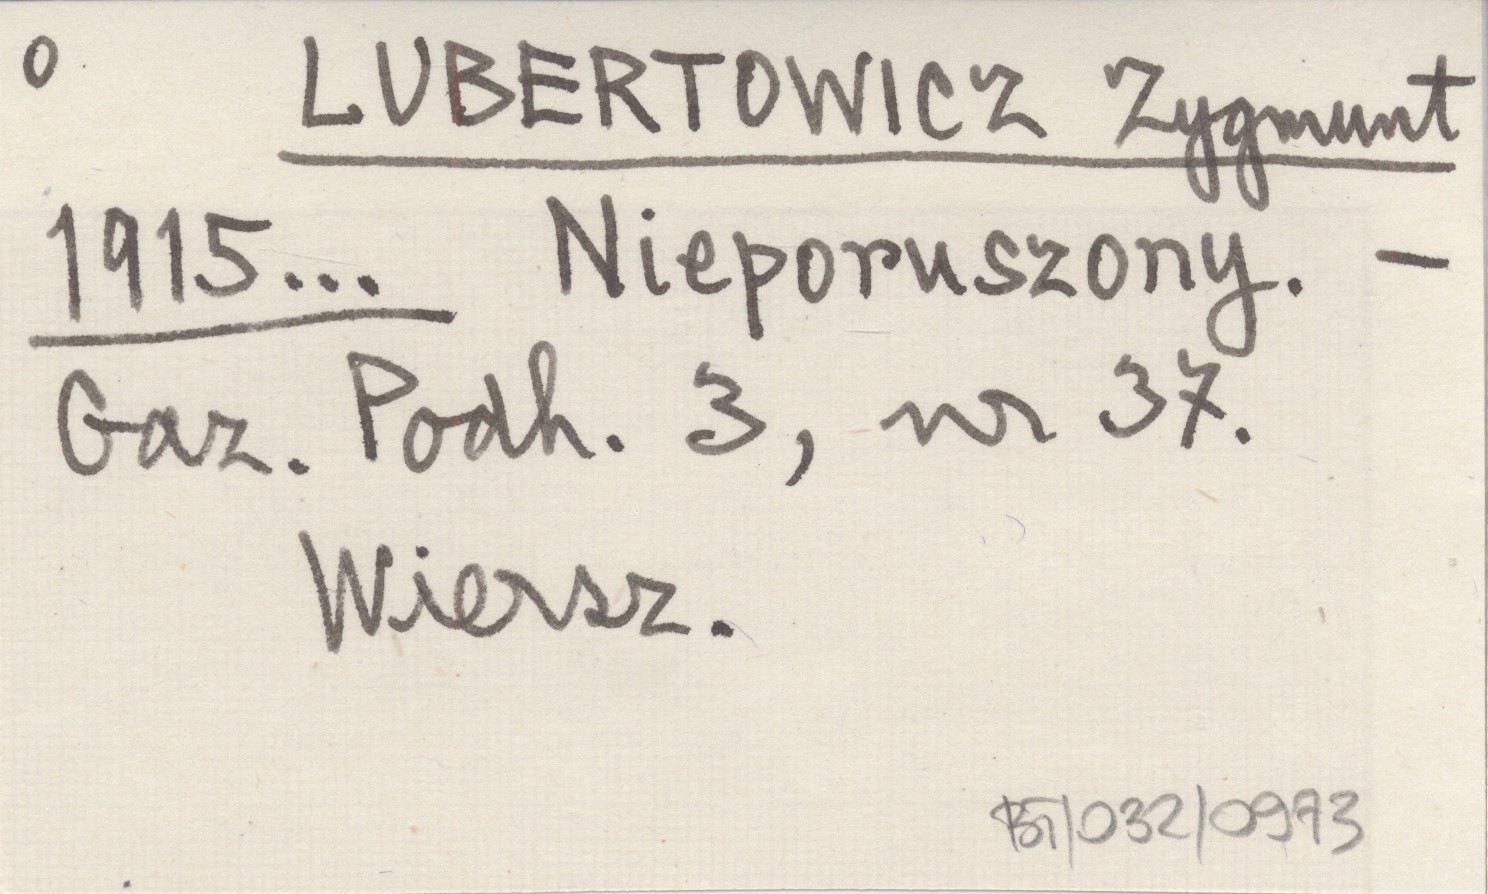 o LUBERTOWICZ Zygmunt
1915... Nieporuszony. —
Gaz. Podh. 3, nr 37.
Wiersz.
BT/032/0973